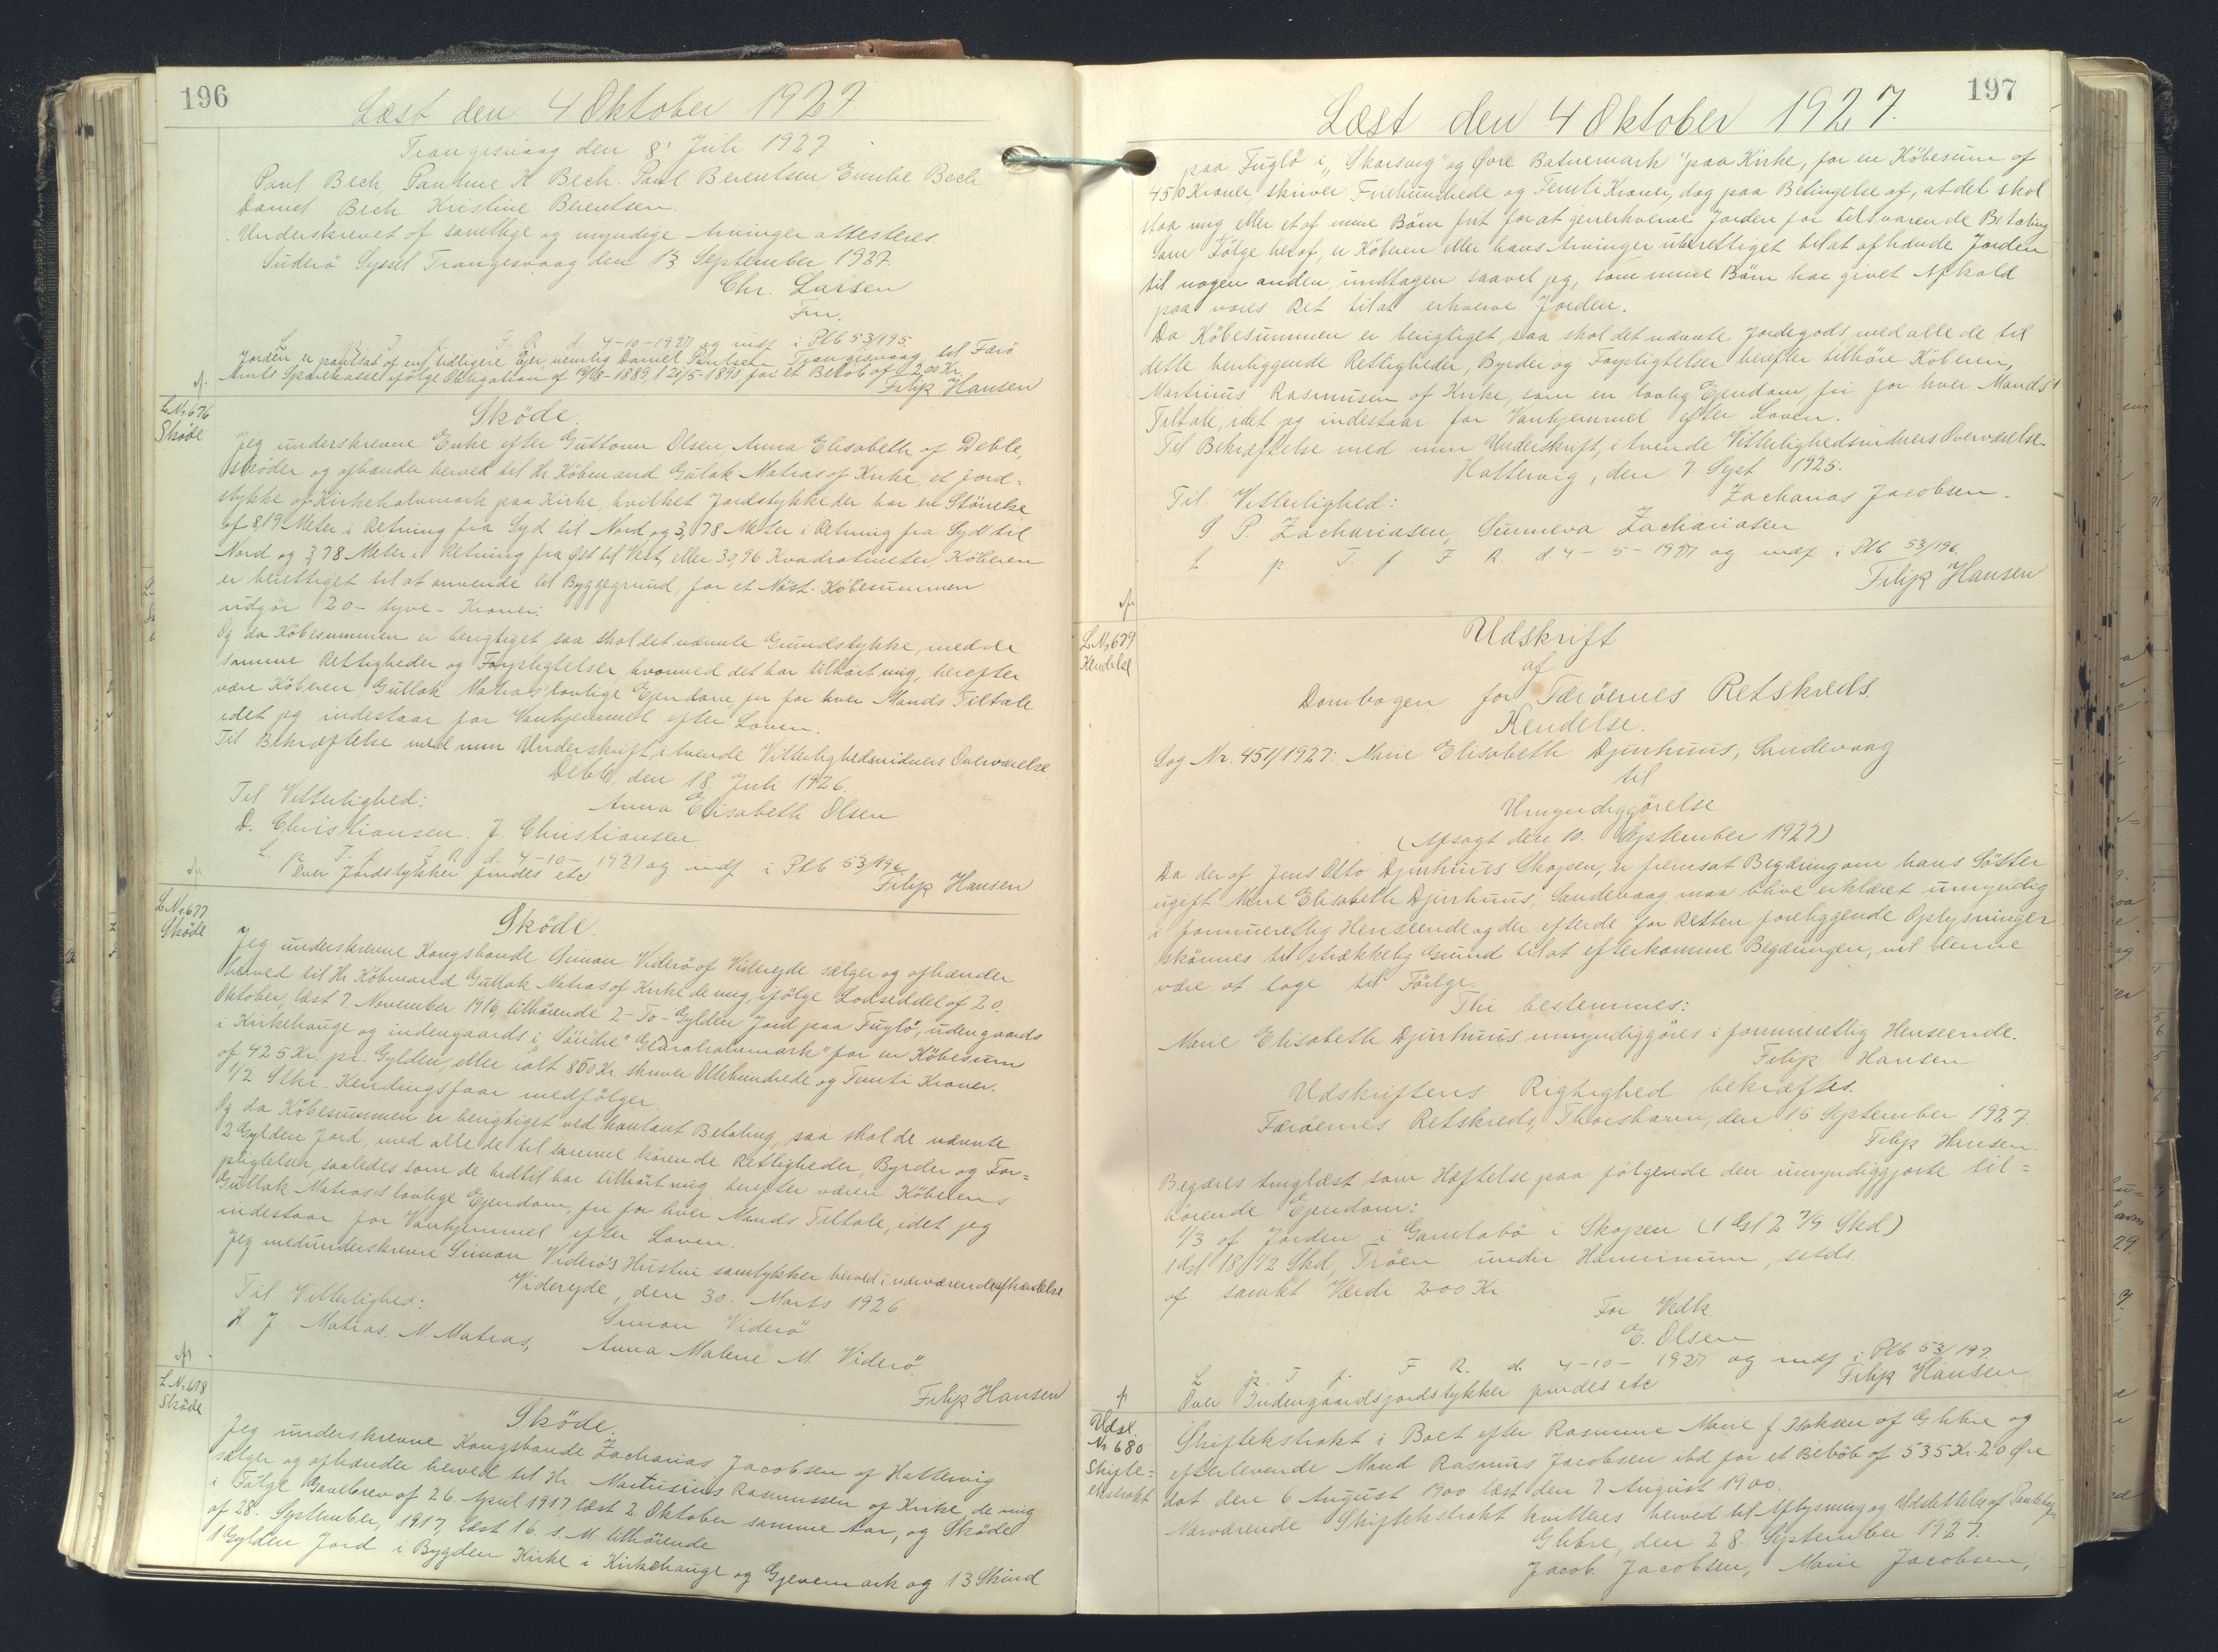 196
Læst den 4 Oktober 1927.
Trangisvaag den 8' Juli 1927
Paul Bech, Pauline K Bech. Paul Berentsen, Emilie Bech
Daniel Bech Kristine Berentsen.
Underskrevet af samtlige og myndige Arvinger attesteres.
Suderö Syssel Trangesvaag den 13 September 1927.
Chr. Larsen
Fm.
L. p. T. f. F. R. d. 4-10-1927 og indf i Plb 53/195.
Jorden er pantsat af en tidligere Ejer, nemlig Daniel Poulsen Trangisvaag, til Færö
Amts Sparekasse ifölge Obligation af 19/8-1889, l 21/5-1890 for et Belöb af 200 Kr.
Filip Hansen
L.Nr 676
Sköde
Sköde.
Jeg underskrevne Enke efter Guttorm Olsen, Anna Elisabeth, af Deble,
sköder og afhænder herved til Hr. Köbmand Gulak Matras of Kirke, et Jord=
stykke af Kirkehalvmark paa Kirke, hvilket Jordstykke der har en Störrelse
af 8,19 Meter i Retning fra Syd til Nord og 3,78 Meter i Retning fra Syd til
Nord og 3,78 Meter i Retning fra Øst til Vest, eller 30,96 Kvadratmeter, Köberen
er berettiget til at anvende til Byggegrund for et Nöst. Köbesummen
udgör 20 - tyve - Kroner.
Og da Köbesummen er berigtiget saa skal det nævnte Grundstykke, med de
samme Rettigheder og Forpligtelser, hvormed det har tilhört mig, herefter
være Köberen, Gullak Matras' lovlige Ejendom, fri for hver Mands Tiltale
idet jeg indestaar for Vanhjemmel efter Loven.
Til Bekræftelse med min Underskrift, i tvende Vitterlighedsvidners Overværelse
Deble den 18. Juli 1926.
Til Vitterlighed:
Anna Elisabeth Olsen
D. Christiansen. J. Christiansen
L p. T. f. F R d. 4-10-1927 og indf i Plb 53/196.
Over Jordstykker findes etc
Filip Hansen
L Nr 677
Sköde
Sköde.
Jeg underskrevne Kongsbonde Simon Viderö of Viderejde sælger og afhænder
herved til Hr Köbmand Gullak Matras of Kirke de mig, ifölge Lodseddel af 20.
Oktober, læst 7. November 1916, tilhörende 2 - To - Gylden Jord paa Fuglö, udengaards
i Kirkehauge og indengaards i "Söndre" Glaralvamark" for en Köbesum
af 425 Kr. pr. Gylden, eller ialt 850 Kr. skriver Ottehundrede og Femti Kroner.
1/2 Stkr. Kendingsfaar medfölger.
Og da Köbesummen er berigtiget ved kontant Betaling, saa skal de nævnte
2 Gylden Jord, med alle de til samme hörende Rettigheder, Byrder og For=
pligtelser, saaledes som de hidtil har tilhört mig, herefter være Köberens
Gullak Matras's lovlige Ejendom, fri for hver Mands Tiltale, idet jeg
indestaar for Vanhjemmel efter Loven.
Jeg medunderskrevne Simon Viderö's Hustru samtykker herved i nærværende Afhændelse
Viderejde, den 30. Marts 1926
Til Vitterlighed:
Simon Viderö
H J Matras. M. Matras,
Anna Malene M. Viderö.
Filip Hansen
L Nr. 678
Sköde
Sköde.
Jeg underskrevne Kongsbonde Zacharias Jacobsen of Hattervig
sælger og afhænder herved til Hr. Martinus Rasmussen of Kirke, de mig
i Fölge Gavebrev af 26. April 1917, læst 2 Oktober samme Aar, og Sköde
af 28. September, 1917, læst 16. s. M. tilhörende
1 Gylden Jord i Bygden Kirke i Kirkehauge og Gjerremark og 13 Skind
197
Læst den 4 Oktober 1927.
paa Fuglö i „Skarsvig" og Øvre Batnemark" paa Kirke, for en Köbesum af
450 Kroner, skriver Firehundrede og Femti Kroner, dog paa Betingelse af, at det skal
staa mig eller et af mine Börn frit for at generhverve Jorden for tilsvarende Betaling
Som Fölge heraf, er Köberen eller hans Arvinger uberettiget til at afhænde Jorden
til nogen anden, undtagen saavel jeg, som mine Börn har givet Afkald
paa vores Ret til at erhverve Jorden.
Da Köbesummen er berigtiget, saa skal det nævnte Jordegods, med alle de til
dette henliggende Rettigheder, Byrder og Forpligtelser herefter tilhöre Köberen,
Martinus Rasmusen of Kirke, som en lovlig Ejendom, fri for hver Mands'
Tiltale, idet jeg indestaar for Vanhjemmel efter Loven.
Til Bekræftelse med min Underskrift, i tvende Vitterlighedsvidners Overværelse.
Hattervig, den 7 Sept 1925.
Til Vitterlighed:
Zacharias Jacobsen.
S P. Zachariasen, Sunneva Zachariasen
L p. T. f. F R. d 4-5-1927 og indf i Plb 53/196.
Filip Hansen
L.Nr 679
Kendelse
Udskrift
af
Dombogen for Færöernes Retskreds.
Kendelse.
Sag Nr. 451/1927: Marie Elisabeth Djurhuus, Sandevaag
til
Umyndiggörelse
(Afsagt den 10. September 1927)
Da der af Jens Otto Djurhuus Skopen, er fremsat Begæring om hans Söster
ugift Marie Elisabeth Djurhuus, Sandevaag maa blive erklæret umyndig
i formueretlig Henseende og der efter de for Retten foreliggende Oplysninger
skönnes tilstrækkelig Grund til at efterkomme Begæringen, vil denne
være at tage til Fölge
Thi bestemmes:
Marie Elisabeth Djurhuus umyndiggöres i formueretlig Henseende.
Filip Hansen
Udskriftens Rigtighed bekræftes.
Færöernes Retskreds, Thorshavn, den 15 September 1927.
Filip Hansen.
Begæres tinglæst som Hæftelse paa fölgende den umyndiggjorte til=
hörende Ejendom:
1/3 af Jorden i Gamlabö i Skopen (1 Gl 2 7/9 Skd)
1 Gl 18 1/2 Skd, Tröen under Hamrinum, sstds
af samlet Værdi 200 Kr
For Vedk.
E. Olsen
L p. T f. F R. d. 4-10-1927 og indf i Plb 53/197.
Over Indengaardsjordstykker findes etc
Filip Hansen
Udsl.
Nr 680
Skifte=
ekstrakt
Skifteekstrakt i Boet efter Rasmine Marie f Isaksen of Glibre og
efterlevende Mand Rasmus Jacobsen ibd for et Belöb af 535 Kr. 20 Øre
dat den 6 August 1900 læst den 7 August 1900.
Nærværende Skifteekstrakt kvitteres herved til Aflysning og Udslettelse af Pantebogen
Glibre, den 28. September 1927.
Jacob Jacobsen, Marie Jacobsen,